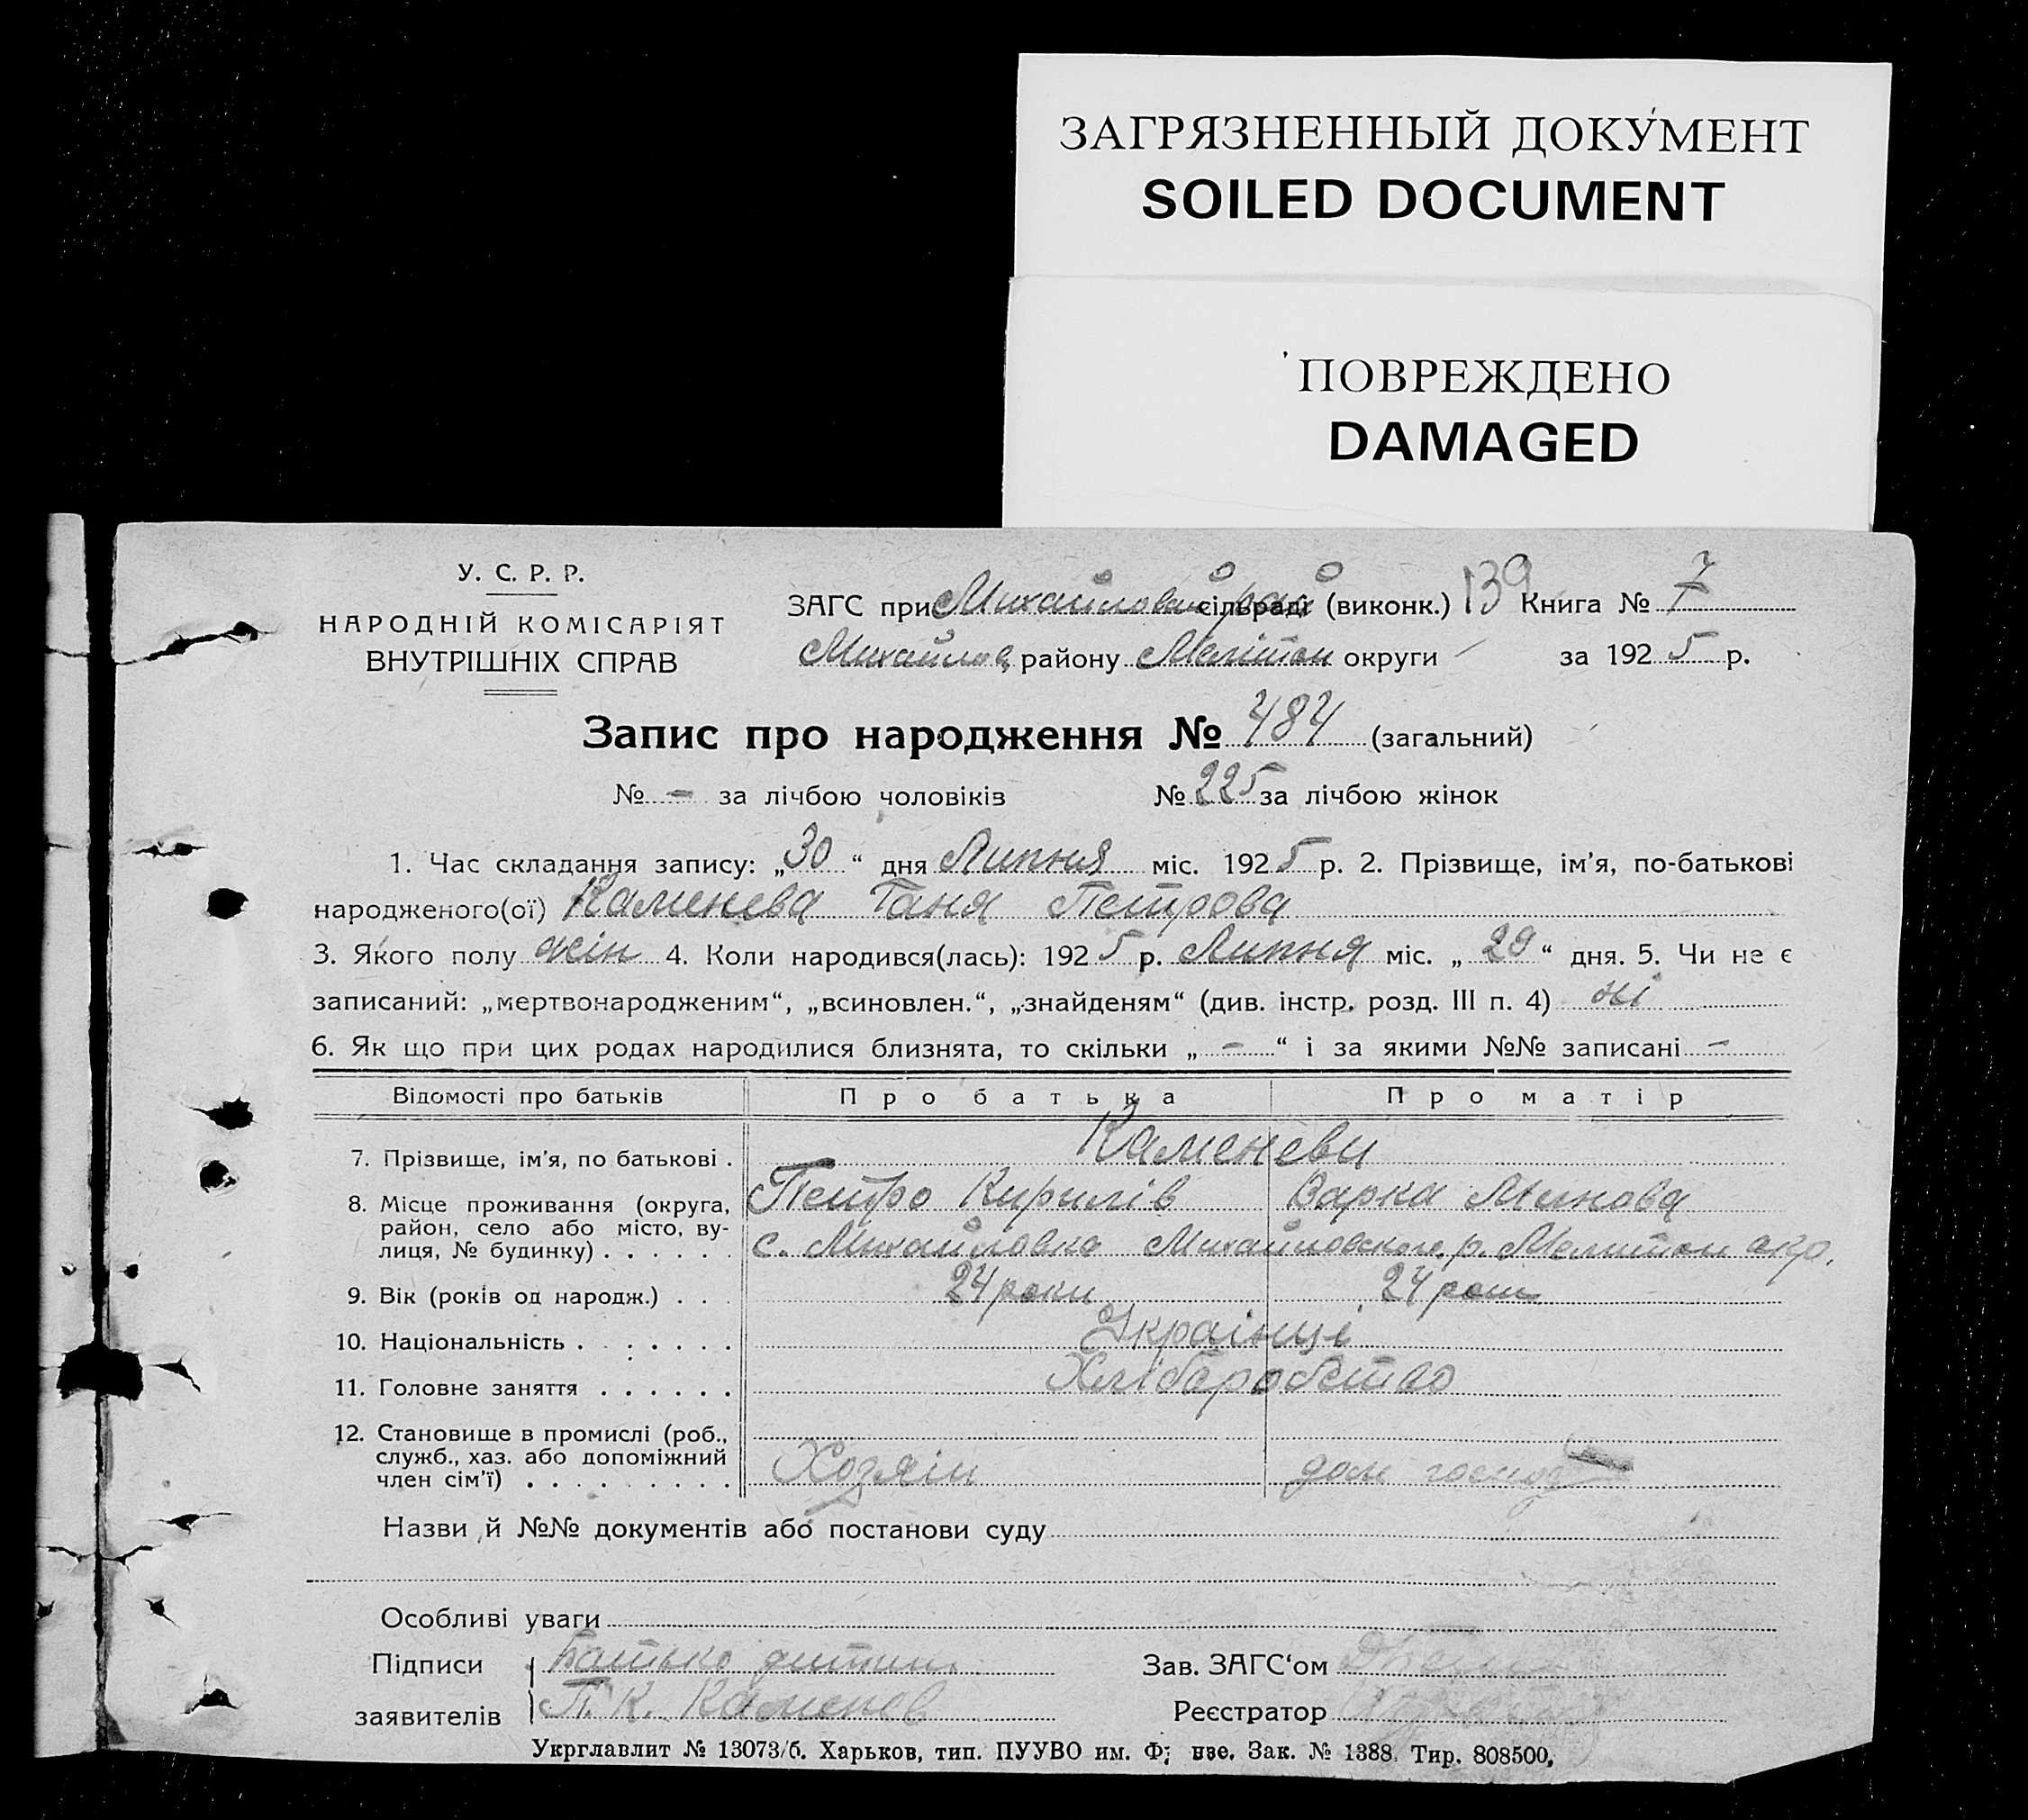 ЗАГРЯЗНЕННЫЙ ДОКУМЕНТ
SOILED DOCUMENT
ПОВРЕЖДЕНО
DAMAGED
У. С. Р. Р.
НАРОДНІЙ КОМІСАРІЯТ
ВНУТРІШНІХ СПРАВ
ЗАГС при Михайловській сільраді (виконк.) 139 Книга № 7
Михайлов району Мелітоп округи за 1925 р.
Запис про народження № 484 (загальний)
№ – за лічбою чоловіків № 225 за лічбою жінок
1. Час складання запису: „30“ дня Липня міс. 1925 р. 2. Прізвище, ім'я, по-батькові
народженого(ої) Каменева Ганя Петрова
3. Якого полу жін 4. Коли народився(лась): 1925 р. Липня міс. „29“ дня. 5. Чи не є
записаний: „мертвонародженим“, „всиновлен.“, „знайденям“ (див. інстр. розд. III п. 4) ні
6. Як що при цих родах народилися близнята, то скільки „ – “ і за якими №№ записані –
Відомості про батьків Про батька Про матір
7. Прізвище, ім'я, по батькові . Каменеви
Петро Кирилів Варка Минова
8. Місце проживання (округа,
район, село або місто, ву-
лиця, № будинку) . . . . . . с. Михайловка Михайловского р. Мелитоп окр.
9. Вік (років од народж.) . . . 24 роки 24 роки
10. Національність . . . . . . . Українці
11. Головне заняття . . . . . . Хліборобство
12. Становище в промислі (роб.,
служб., хаз. або допоміжний
член сім'ї) . . . . . . . . . Хозяїн дом господ
Назви й №№ документів або постанови суду
Особливі уваги
Підписи Батько дитини
заявителів П. К. Каменев
Зав. ЗАГС'ом
Реєстратор
Укрглавлит № 13073/б. Харьков, тип. ПУУВО им. Зак. № 1388. Тир. 808500,